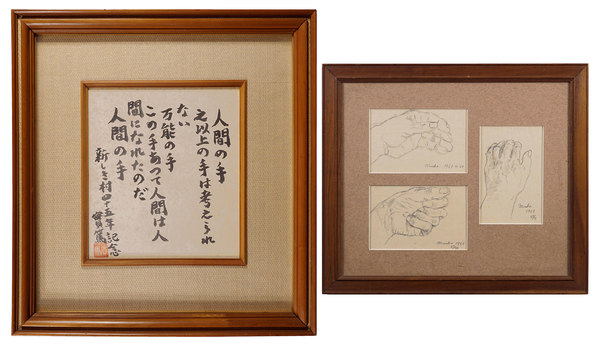 人間の手
之以上の手は考えられ
ない
万能の手
この手あつて人間は人
間になれたのだ
人間の手
新しき村四十五年記念
實篤